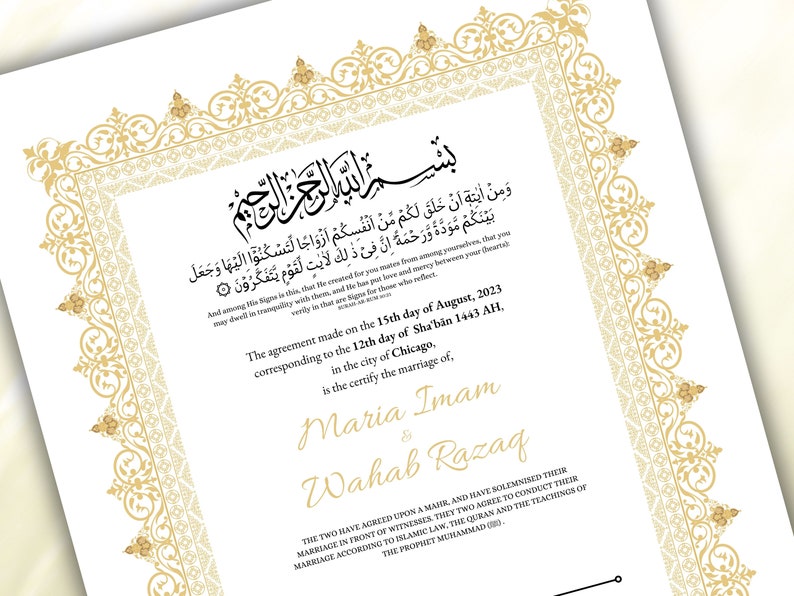 بسم الله الرحمن الرحيم
وَمِنْ اٰيٰتِهٖٓ اَنْ خَلَقَ لَكُمْ مِّنْ اَنْفُسِكُمْ اَزْوَاجًا لِّتَسْكُنُوْٓا اِلَيْهَا وَجَعَلَ
بَيْنَكُمْ مَّوَدَّةً وَّرَحْمَةً ؕ اِنَّ فِيْ ذٰلِكَ لَاٰيٰتٍ لِّقَوْمٍ يَّتَفَكَّرُوْنَ
And among His Signs is this, that He created for you mates from among yourselves, that you
may dwell in tranquility with them, and He has put love and mercy between your (hearts):
verily in that are Signs for those who reflect.
SURAH-AR-RUM 30:21
The agreement made on the 15th day of August, 2023
corresponding to the 12th day of Sha'bān 1443 AH,
in the city of Chicago,
is the certify the marriage of,
Maria Imam
&
Wahab Razaq
THE TWO HAVE AGREED UPON A MAHR, AND HAVE SOLEMNISED THEIR
MARRIAGE IN FRONT OF WITNESSES. THEY TWO AGREE TO CONDUCT THEIR
MARRIAGE ACCORDING TO ISLAMIC LAW, THE QURAN AND THE TEACHINGS OF
THE PROPHET MUHAMMAD (ﷺ).